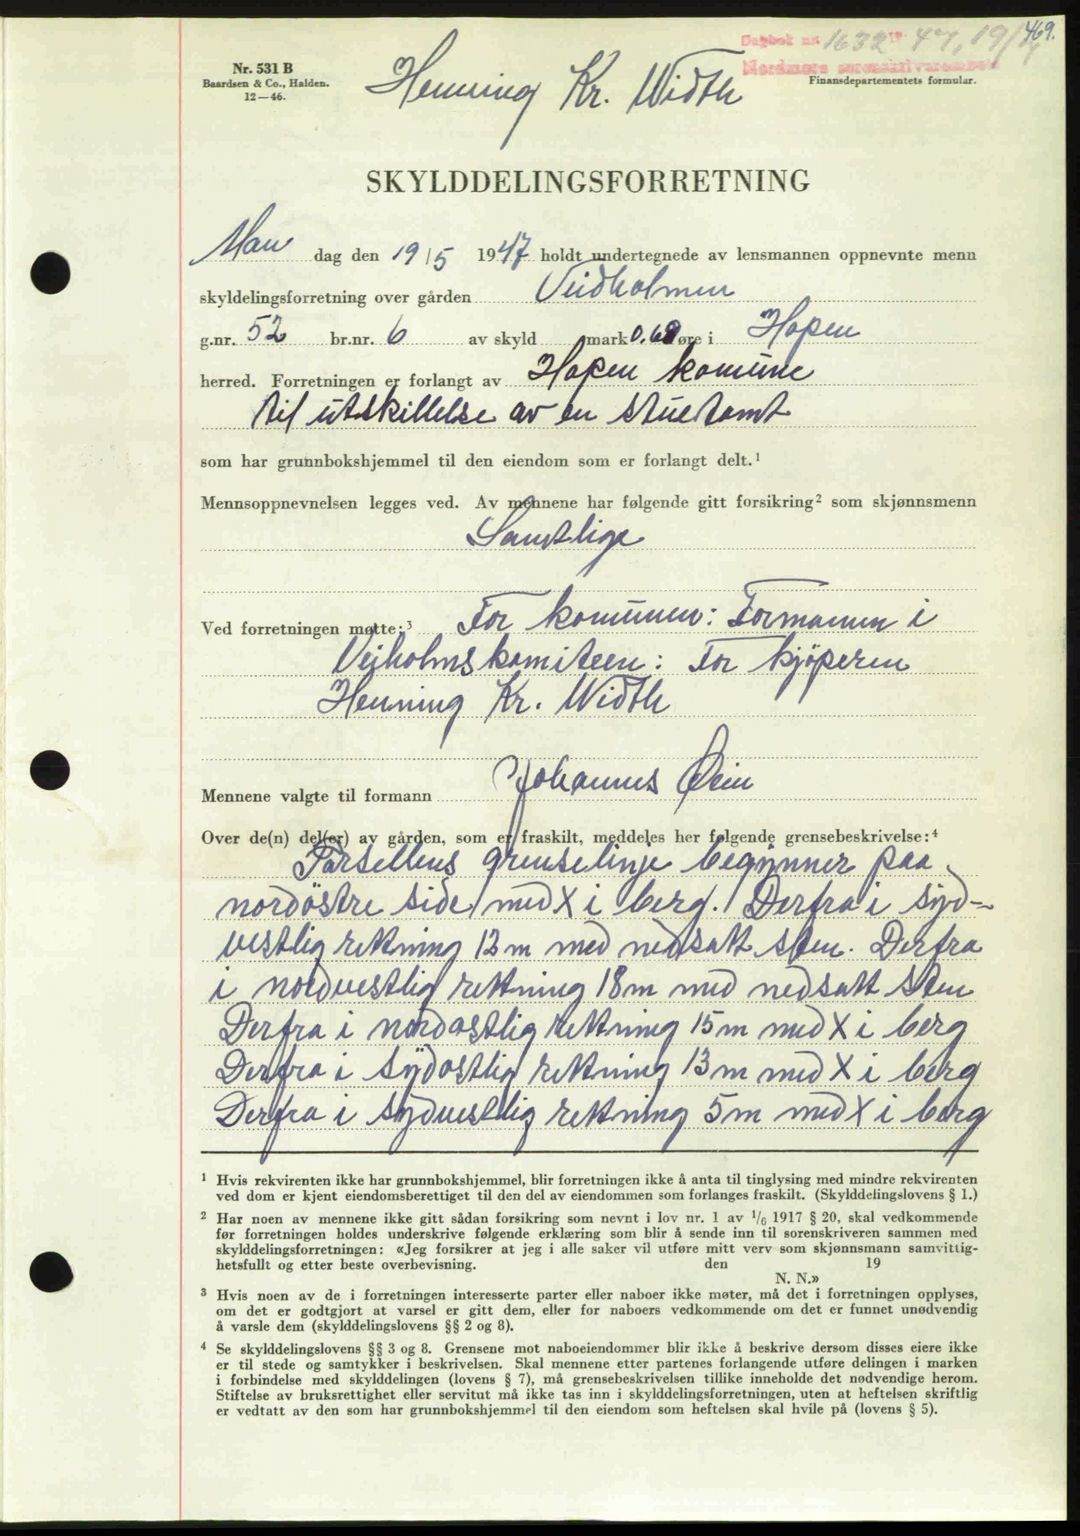 469.
Dagbok nr 1632 19 47, 19/
Nordmøre sorenskriverembete
Nr. 531 B
Baardsen & Co., Halden.
12—46.
Henning Kr. Width
Finansdepartementets formular.
SKYLDDELINGSFORRETNING
Man dag den 19/5 1947 holdt undertegnede av lensmannen oppnevnte menn
skyldelingsforretning over gården Veidholmen
g.nr. 52 br.nr. 6 av skyld mark 0.69 øre i Hopen
herred. Forretningen er forlangt av Hopen komune
til utskillelse av en stuetomt
som har grunnbokshjemmel til den eiendom som er forlangt delt.¹
Mennsoppnevnelsen legges ved. Av mennene har følgende gitt forsikring² som skjønnsmenn
Samtlige
Ved forretningen møtte:³ For komunen: Formannen i
Vejholmskomiteen: For kjöperen
Henning Kr. Width
Mennene valgte til formann Johannes Øien
Over de(n) del(er) av gården, som er fraskilt, meddeles her følgende grensebeskrivelse:⁴
Parsellens grenselinje begynner paa
nordöstre side med X i berg. Derfra i syd-
vestlig retning 12 m med nedsatt sten. Derfra
i nordvestlig retning 18 m med nedsatt sten
Derfra i nordostlig retning 15 m med X i berg
Derfra i sydostlig retning 13 m med X i berg
Derfra i sydvestlig retning 5 m med X i berg
¹ Hvis rekvirenten ikke har grunnbokshjemmel, blir forretningen ikke å anta til tinglysing med mindre rekvirenten
ved dom er kjent eiendomsberettiget til den del av eiendommen som forlanges fraskilt. (Skylddelingslovens § 1.)
² Har noen av mennene ikke gitt sådan forsikring som nevnt i lov nr. 1 av 1/6 1917 § 20, skal vedkommende
før forretningen holdes underskrive følgende erklæring som blir å sende inn til sorenskriveren sammen med
skylddelingsforretningen: «Jeg forsikrer at jeg i alle saker vil utføre mitt verv som skjønnsmann samvittig-
hetsfullt og etter beste overbevisning. den 19
N. N.»
³ Hvis noen av de i forretningen interesserte parter eller naboer ikke møter, må det i forretningen opplyses,
om det er godtgjort at varsel er gitt dem, eller for naboers vedkommende om det er funnet unødvendig
å varsle dem (skylddelingslovens §§ 2 og 8).
⁴ Se skylddelingslovens §§ 3 og 8. Grensene mot naboeiendommer blir ikke å beskrive dersom disses eiere ikke
er til stede og samtykker i beskrivelsen. Skal mennene etter partenes forlangende utføre delingen i marken
i forbindelse med skylddelingen (lovens § 7), må grensebeskrivelsen tillike inneholde det nødvendige herom.
Stiftelse av bruksrettighet eller servitut må ikke tas inn i skylddelingsforretningen, uten at heftelsen skriftlig
er vedtatt av den som har grunnbokshjemmel til den eiendom som heftelsen skal hvile på (lovens § 5).